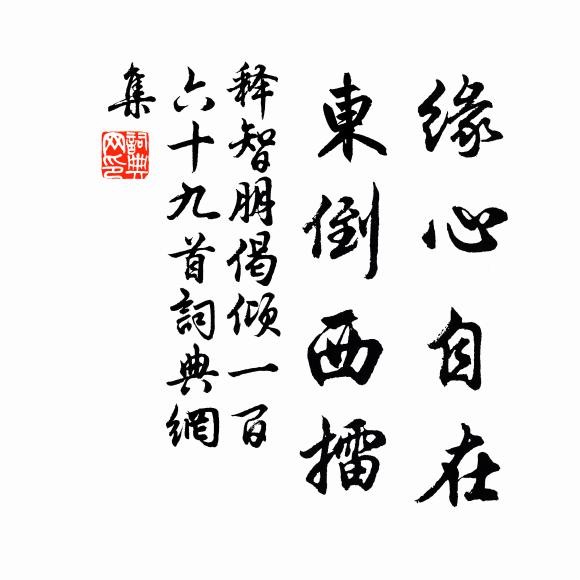 緣心自在
東倒西擂
释智朋偈傾一百
六十九首詞典網
集
詞典網印